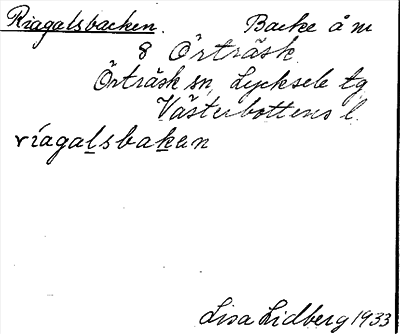 Riagalsbacken. Backe å nr
8 Örträsk.
Örträsk sn, Lycksele tg
Västerbottens l.
ríagalsbakan
Lisa Lidberg 1933